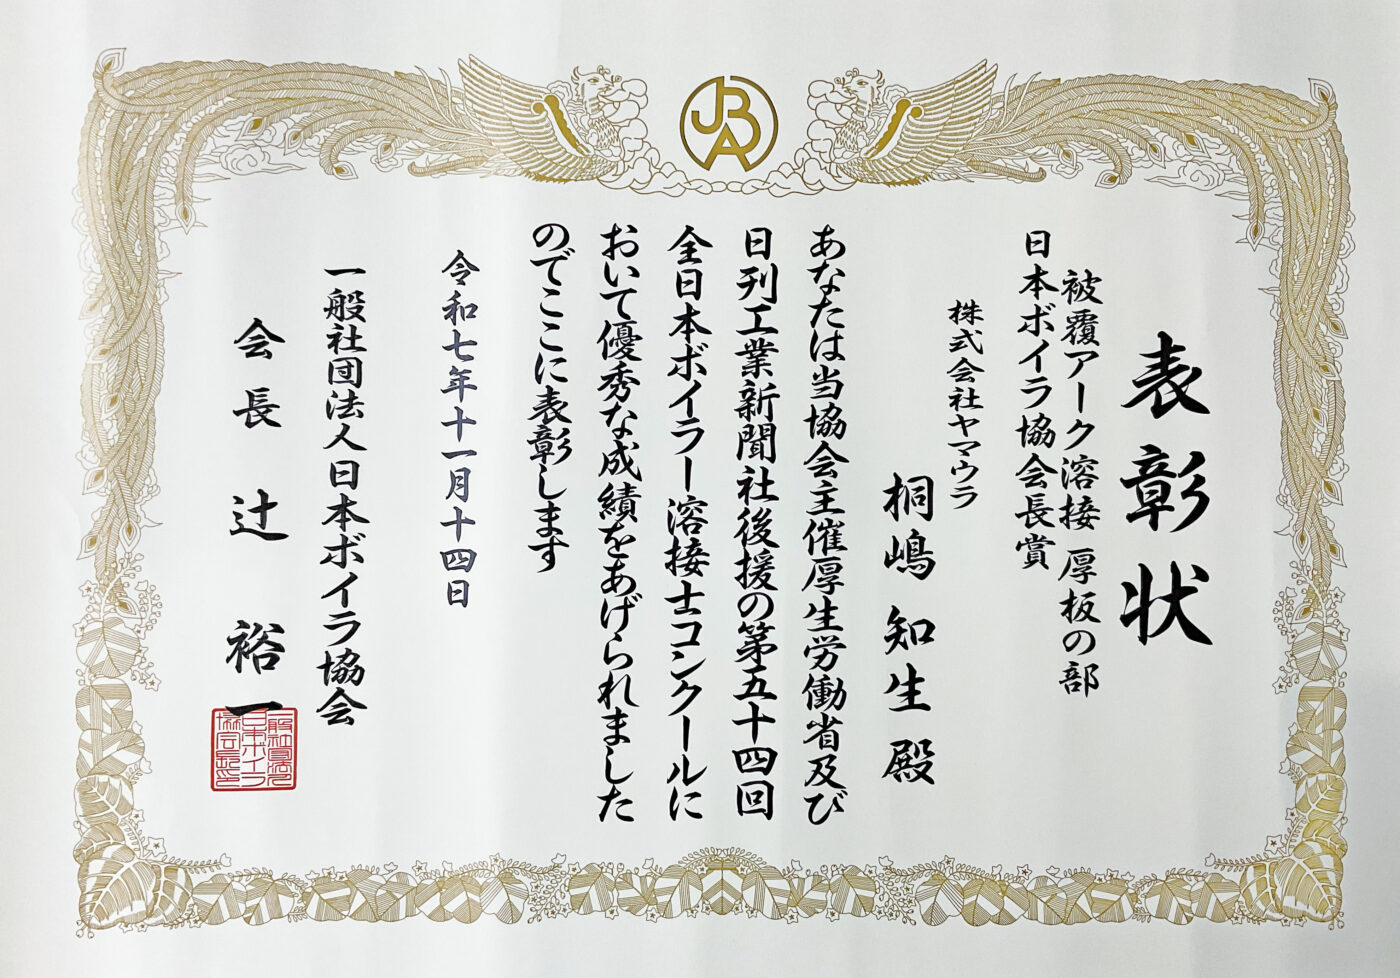 JBA
表彰状
被覆アーク溶接 厚板の部
日本ボイラ協会長賞
株式会社ヤマウラ
桐嶋 知生 殿
あなたは当協会主催厚生労働省及び
日刊工業新聞社後援の第五十四回
全日本ボイラー溶接士コンクールに
おいて優秀な成績をあげられました
のでここに表彰します
令和七年十一月十四日
一般社団法人日本ボイラ協会
会長 辻 裕一
一般社団法人
日本ボイラ
協会長印